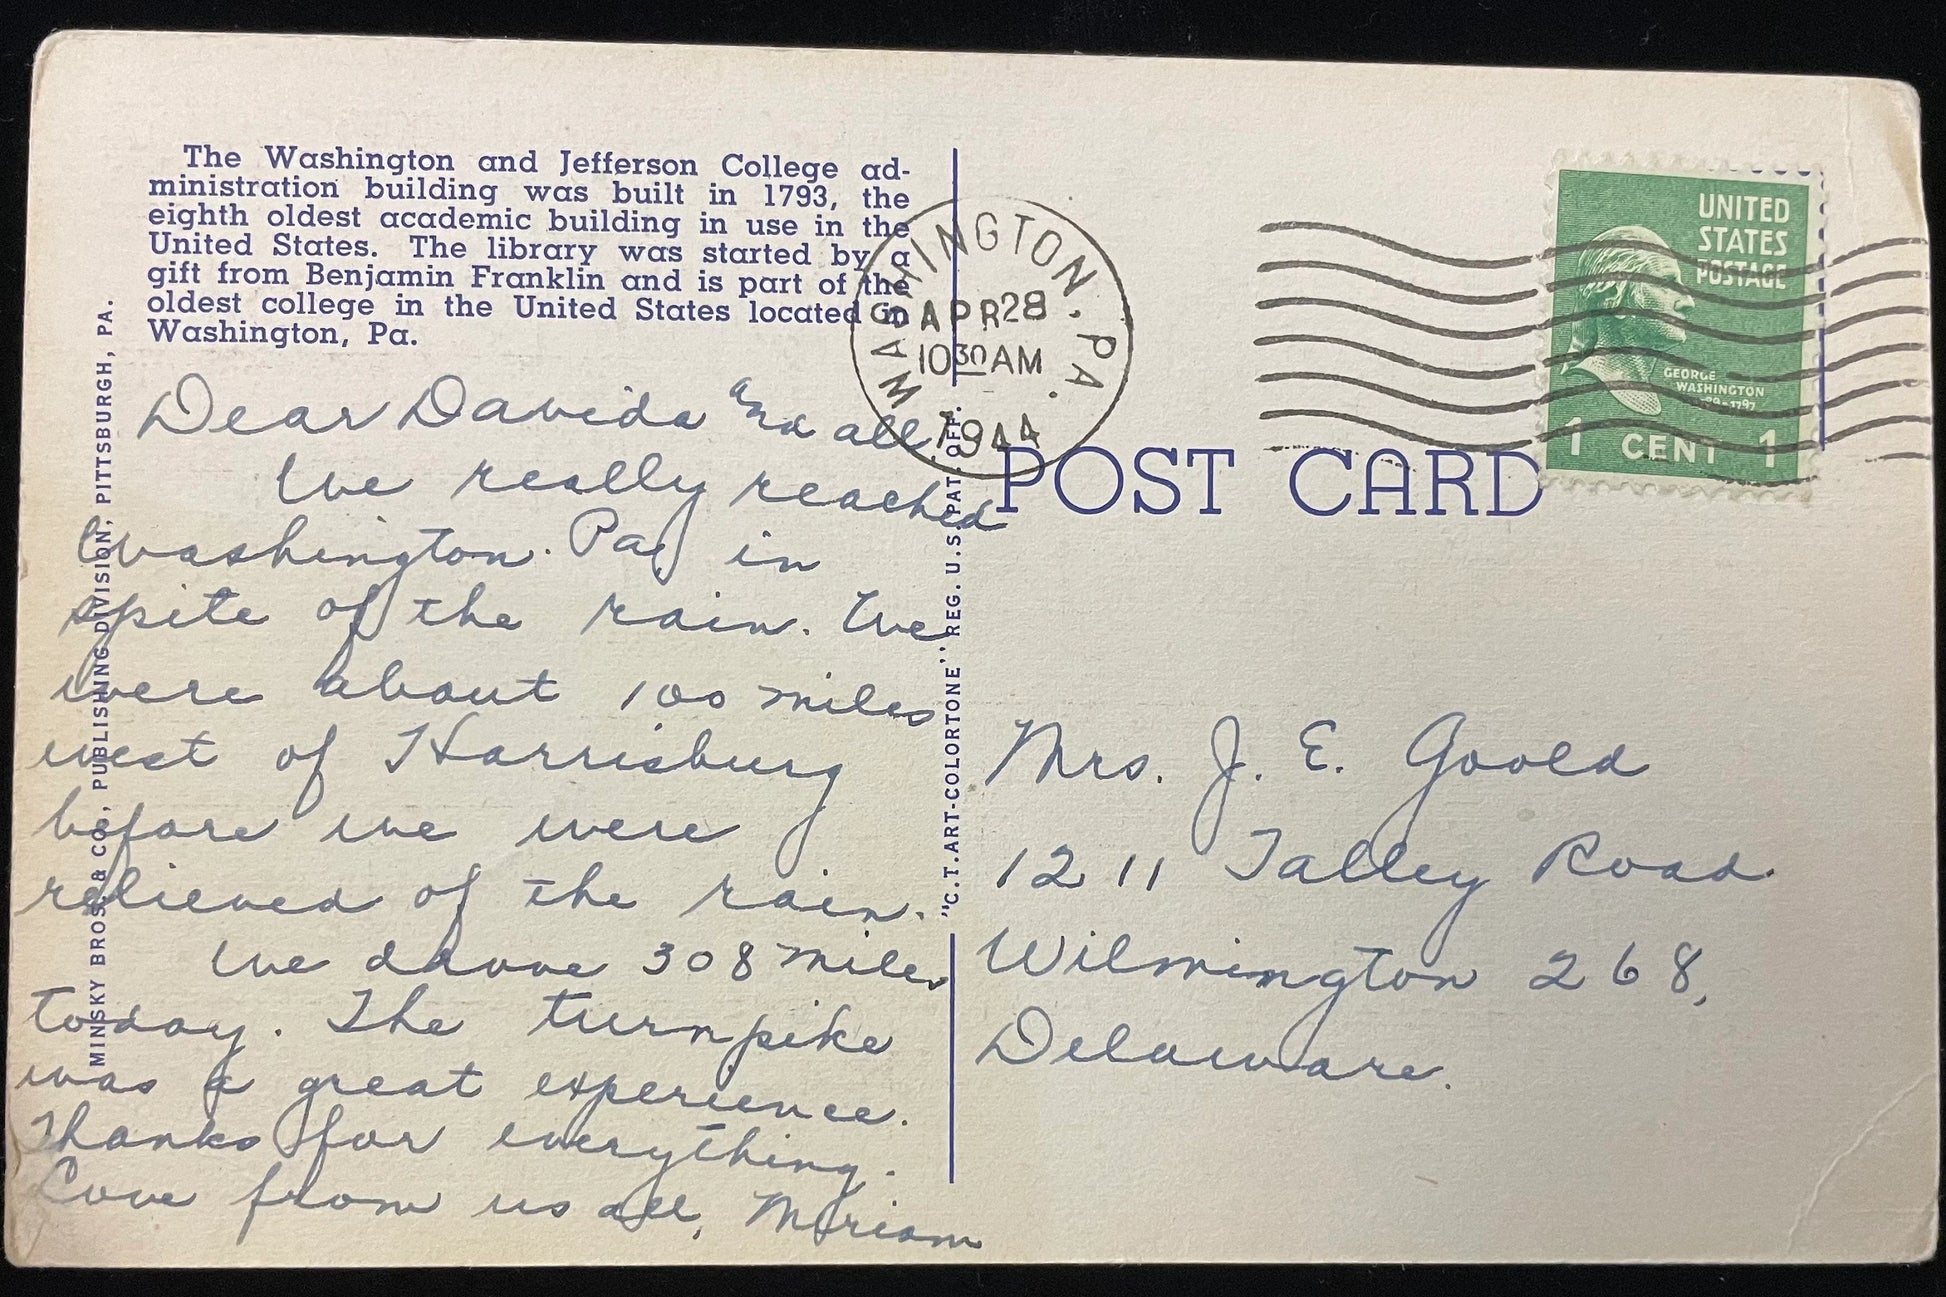 The Washington and Jefferson College ad-
ministration building was built in 1793, the
eighth oldest academic building in use in the
United States. The library was started by a
gift from Benjamin Franklin and is part of the
oldest college in the United States located in
Washington, Pa.
WASHINGTON, PA.
APR 28
10 30 AM
1944
UNITED
STATES
POSTAGE
GEORGE
WASHINGTON
1789-1797
1 CENT 1
POST CARD
MINSKY BROS. & CO., PUBLISHING DIVISION, PITTSBURGH, PA.
"C.T. ART-COLORTONE" REG. U. S. PAT. OFF.
Dear Davida and all,
We really reached
Washington. Pa, in
spite of the rain. We
were about 100 miles
west of Harrisburg
before we were
relieved of the rain.
We drove 308 miles
today. The turnpike
was a great experience.
Thanks for everything.
Love from us all, Miriam
Mrs. J. E. Goold
1211 Talley Road.
Wilmington 268,
Delaware.